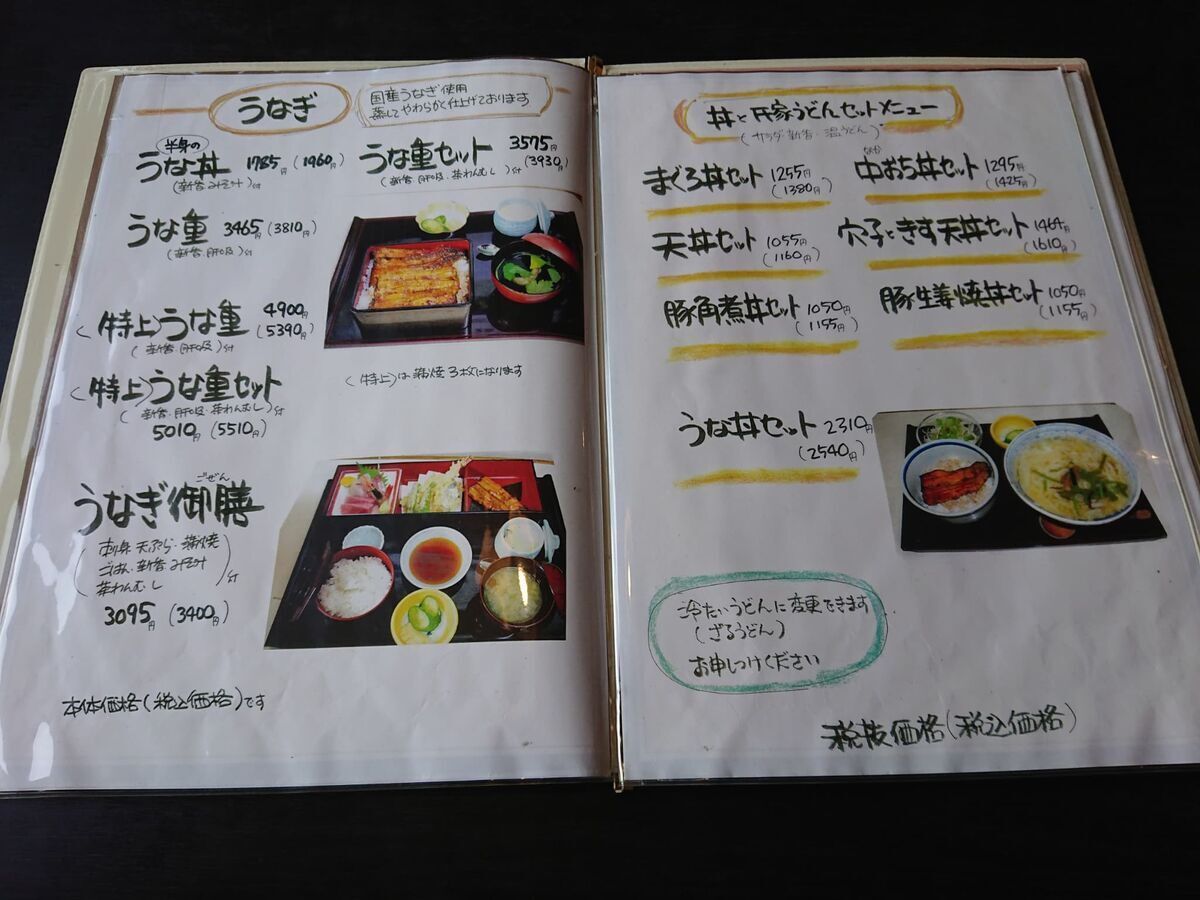 うなぎ
国産うなぎ使用
蒸してやわらかく仕上げております
半身の
うな丼 1785円(1960円)
(新香.みそ汁)付
うな重セット 3575円
(3930円)
(新香.肝吸.茶わんむし)付
うな重 3465円(3810円)
(新香.肝吸)付
(特上)うな重 4900円
(5390円)
(新香.肝吸)付
(特上)は蒲焼3枚になります
(特上)うな重セット
(新香.肝吸.茶わんむし)付
5010円(5510円)
ごぜん
うなぎ御膳
(刺身 天ぷら.蒲焼
ごはん.新香.みそ汁
茶わんむし)付
3095円(3400円)
本体価格(税込価格)です
丼と氏家うどんセットメニュー
(サラダ.新香.温うどん)
まぐろ丼セット 1255円
(1380円)
なか
中おち丼セット 1295円
(1425円)
天丼セット 1055円
(1160円)
穴子ときす天丼セット 1464円
(1610円)
豚角煮丼セット 1050円
(1155円)
豚生姜焼丼セット 1050円
(1155円)
うな丼セット 2310円
(2540円)
冷たいうどんに変更できます
(ざるうどん)
お申しつけください
税抜価格(税込価格)